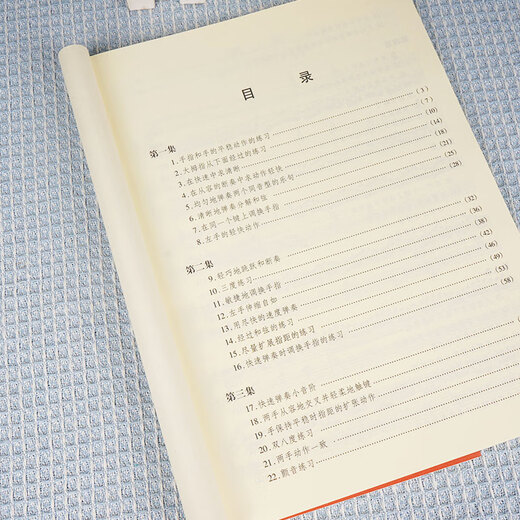 目 录
第一集
1.手指和手的平稳动作的练习 (3)
2.大拇指从下面经过的练习 (7)
3.在快速中求清晰 (10)
4.在从容的断奏中求动作轻快 (14)
5.均匀地弹奏两个同音型的乐句 (18)
6.清晰地弹奏分解和弦 (21)
7.在同一个键上调换手指 (25)
8.左手的轻快动作 (28)
第二集
9.轻巧地跳跃和断奏 (32)
10.三度练习 (36)
11.敏捷地调换手指 (38)
12.左手伸缩自如 (42)
13.用尽快的速度弹奏 (46)
14.经过和弦的练习 (49)
15.尽量扩展指距的练习 (53)
16.快速弹奏时调换手指的练习 (58)
第三集
17.快速弹奏小音阶
18.两手从容地交叉并轻柔地触键
19.手保持平稳时指距的扩张动作
20.双八度练习
21.两手动作一致
22.颤音练习